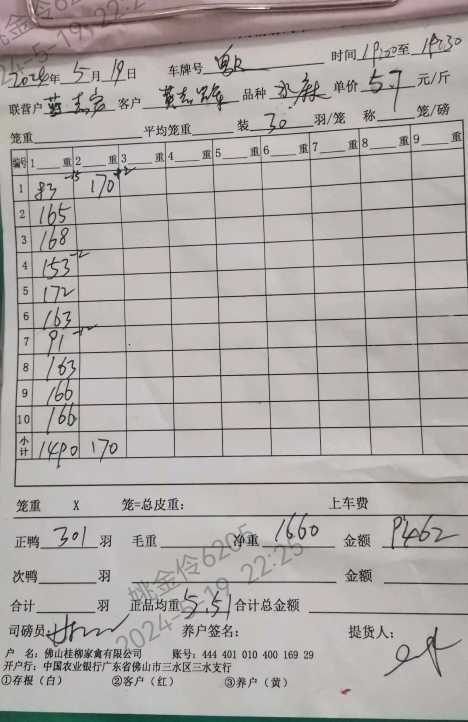 2024年5月19日 车牌号 时间 19:00至19:30
联营户 客户 品种 单价 5.7 元/斤
笼重 平均笼重 装 30 羽/笼 称 笼/磅
编号 1 重 2 重 3 重 4 重 5 重 6 重 7 重 8 重 9 重
1 83 -15 170 +2
2 165
3 168
4 153 -2
5 172
6 163
7 91
8 163
9 166
10 166
小计 1490 170
笼重 X 笼=总皮重: 上车费
正鸭 301 羽 毛重 净重 1660 金额 9462
次鸭 羽 金额
合计 羽 正品均重 5.51 合计总金额
司磅员 养户签名: 提货人:
户 名: 佛山桂柳家禽有限公司 账号: 444 401 010 400 169 29
开户行: 中国农业银行广东省佛山市三水区三水支行
①存根(白) ②客户(红) ③养户(黄)
姚金伶6205
2024-5-19 22:25